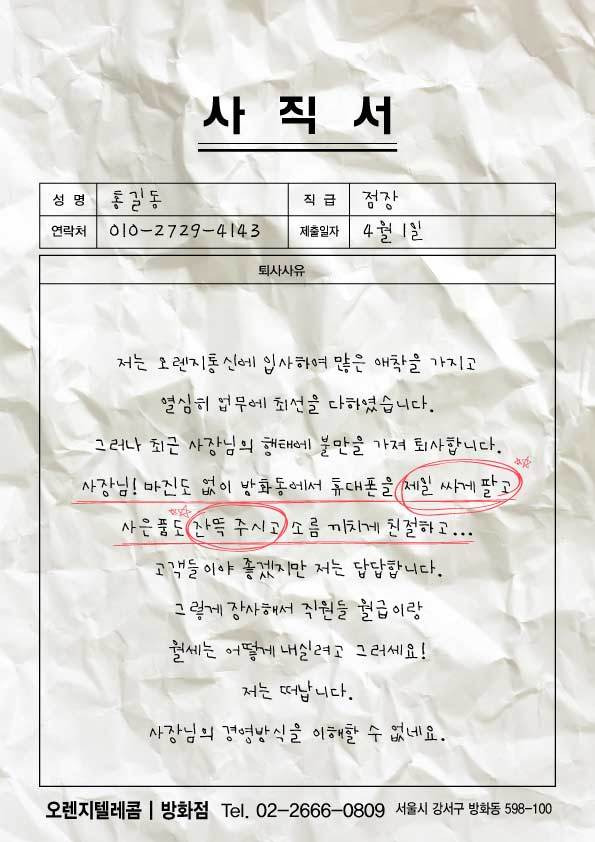 사 직 서
성 명 홍길동 직 급 점장
연락처 010-2729-4143 제출일자 4월 1일
퇴사사유
저는 오렌지통신에 입사하여 많은 애착을 가지고
열심히 업무에 최선을 다하였습니다.
그러나 최근 사장님의 행태에 불만을 가져 퇴사합니다.
사장님! 마진도 없이 방화동에서 휴대폰을 제일 싸게 팔고
사은품도 잔뜩 주시고 소름 끼치게 친절하고...
고객들이야 좋겠지만 저는 답답합니다.
그렇게 장사해서 직원들 월급이랑
월세는 어떻게 내실려고 그러세요!
저는 떠납니다.
사장님의 경영방식을 이해할 수 없네요.
오렌지텔레콤 | 방화점 Tel. 02-2666-0809 서울시 강서구 방화동 598-100